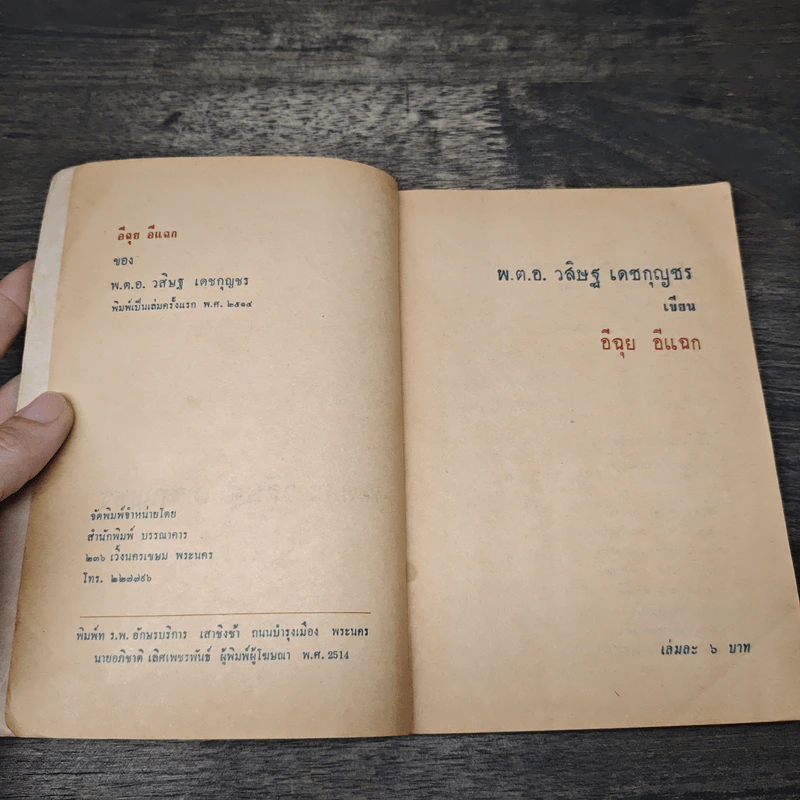 อีฉุย อีแฉก
ของ
พ.ต.อ. วสิษฐ เดชกุญชร
พิมพ์เป็นเล่มครั้งแรก พ.ศ. ๒๕๑๔
จัดพิมพ์จำหน่ายโดย
สำนักพิมพ์ บรรณาคาร
๒๓๖ เวิ้งนครเขษม พระนคร
โทร. ๒๒๗๗๙๖
พิมพ์ท ร.พ. อักษรบริการ เสาชิงช้า ถนนบำรุงเมือง พระนคร
นายอภิชาติ เลิศเพชรพันธ์ ผู้พิมพ์ผู้โฆษณา พ.ศ. 2514
พ.ต.อ. วสิษฐ เดชกุญชร
เขียน
อีฉุย อีแฉก
เล่มละ ๖ บาท